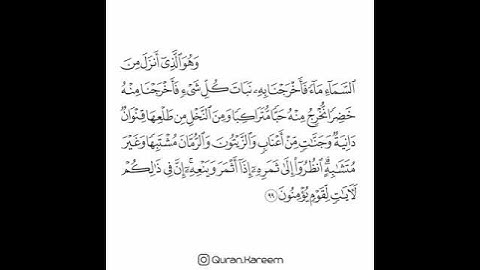 وَهُوَ ٱلَّذِىٓ أَنزَلَ مِنَ
ٱلسَّمَآءِ مَآءً فَأَخْرَجْنَا بِهِۦ نَبَاتَ كُلِّ شَىْءٍ فَأَخْرَجْنَا مِنْهُ
خَضِرًا نُّخْرِجُ مِنْهُ حَبًّا مُّتَرَاكِبًا وَمِنَ ٱلنَّخْلِ مِن طَلْعِهَا قِنْوَانٌ
دَانِيَةٌ وَجَنَّٰتٍ مِّنْ أَعْنَابٍ وَٱلزَّيْتُونَ وَٱلرُّمَّانَ مُشْتَبِهًا وَغَيْرَ
مُتَشَٰبِهٍ ۗ ٱنظُرُوٓا۟ إِلَىٰ ثَمَرِهِۦٓ إِذَآ أَثْمَرَ وَيَنْعِهِۦٓ ۚ إِنَّ فِى ذَٰلِكُمْ
لَءَايَٰتٍ لِّقَوْمٍ يُؤْمِنُونَ ٩٩
Quran.Kareem